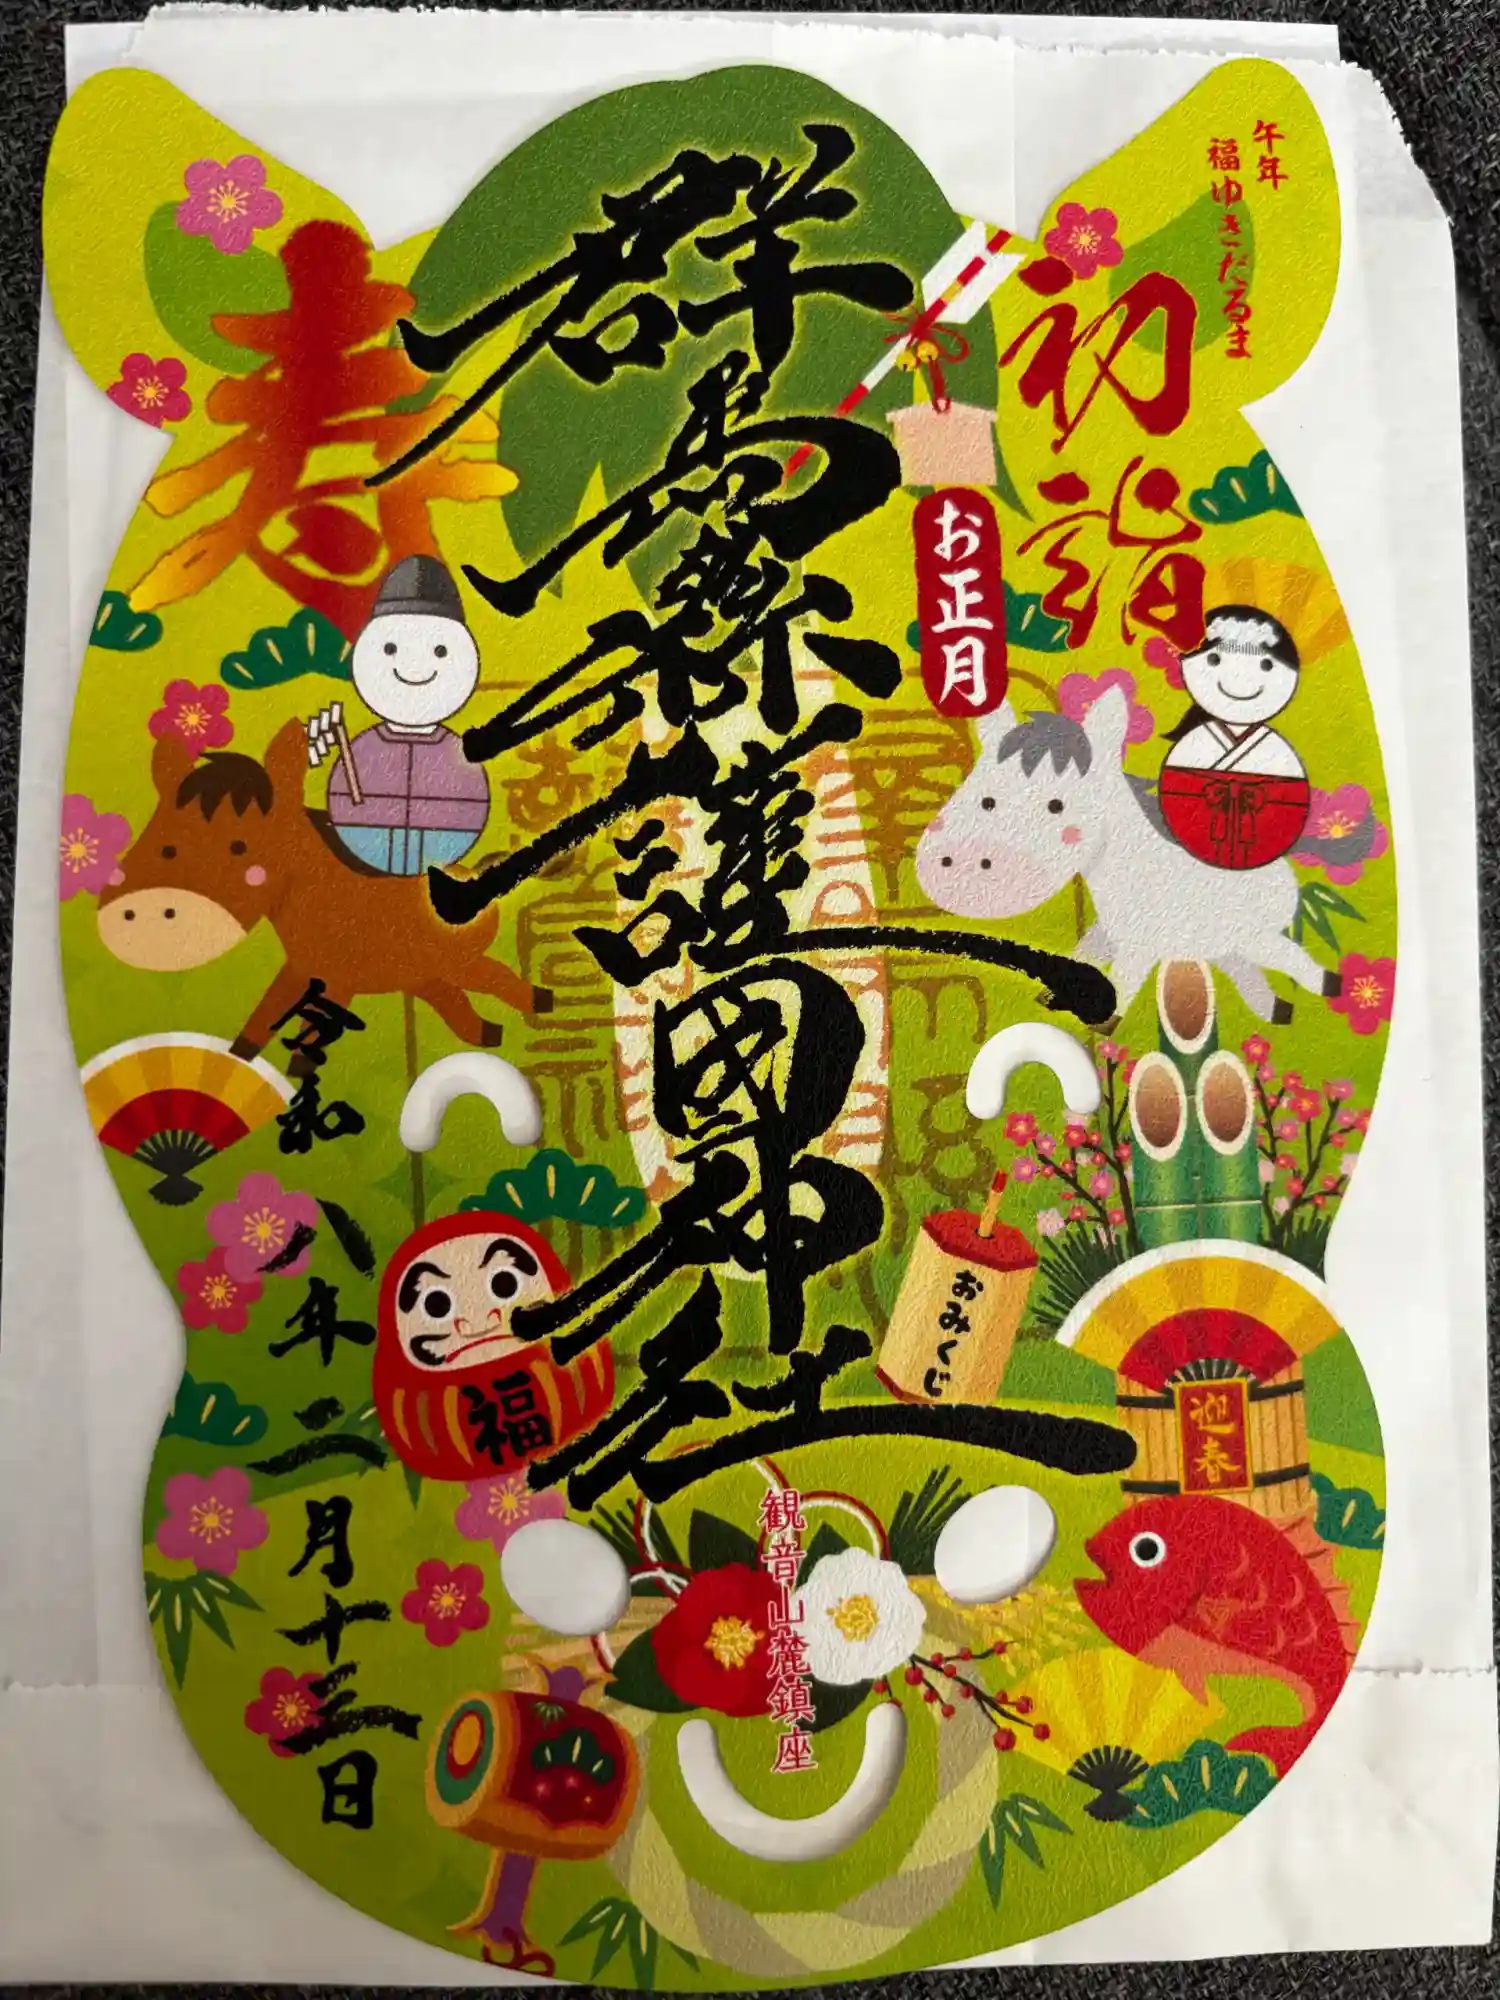 午年
福ゆきだるま
初詣
お正月
群馬縣護國神社
寿
令和八年二月十三日
おみくじ
迎春
福
観音山麓鎮座